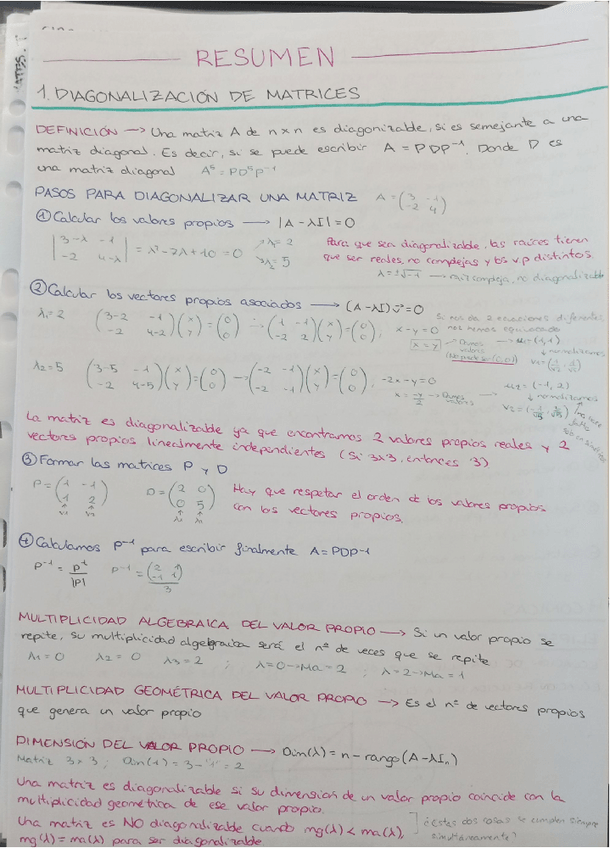 RESUMEN
1. DIAGONALIZACIÓN DE MATRICES
DEFINICIÓN → Una matriz A de n x n es diagonizable, si es semejante a una
matriz diagonal. Es decir, si se puede escribir A = PDP⁻¹. Donde D es
una matriz diagonal A⁵ = PD⁵P⁻¹
PASOS PARA DIAGONALIZAR UNA MATRIZ A = (3 -1 / -2 4)
① Calcular los valores propios → |A - λI| = 0
|3-λ -1 / -2 4-λ| = λ² - 7λ + 10 = 0 λ₁ = 2 λ₂ = 5
Para que sea diagonalizable, las raíces tienen
que ser reales, no complejas y los v.p distintos
λ = ±√-1 → raíz compleja, no diagonalizable
② Calcular los vectores propios asociados → (A - λI) v⃗ = 0
Si nos da 2 ecuaciones diferentes,
nos hemos equivocado
λ₁ = 2 (3-2 -1 / -2 4-2)(x / y) = (0 / 0) → (1 -1 / -2 2)(x / y) = (0 / 0), x - y = 0
x = y → Damos valores (No puede ser (0,0)) → u₁ = (1,1)
↓ normalizamos
λ₂ = 5 (3-5 -1 / -2 4-5)(x / y) = (0 / 0) → (-2 -1 / -2 -1)(x / y) = (0 / 0), -2x - y = 0
x = -y/2 → Damos valores → u₂ = (-1, 2)
↓ normalizamos
La matriz es diagonalizable ya que encontramos 2 valores propios reales y 2
vectores propios linealmente independientes (si 3x3, entonces 3)
③ Formar las matrices P y D
P = (1 -1 / 1 2) D = (2 0 / 0 5)
Hay que respetar el orden de los valores propios
con los vectores propios.
④ Calculamos P⁻¹ para escribir finalmente A = PDP⁻¹
MULTIPLICIDAD ALGEBRAICA DEL VALOR PROPIO → Si un valor propio se
repite, su multiplicidad algebraica será el nº de veces que se repite
λ₁ = 0 λ₂ = 0 λ₃ = 2 ; λ = 0 → Ma = 2 ; λ = 2 → Ma = 1
MULTIPLICIDAD GEOMÉTRICA DEL VALOR PROPIO → Es el nº de vectores propios
que genera un valor propio
DIMENSIÓN DEL VALOR PROPIO → Dim(λ) = n - rango(A - λIₙ)
Matriz 3x3 ; Dim(1) = 3 - "1" = 2
Una matriz es diagonalizable si su dimensión de un valor propio coincide con la
multiplicidad geométrica de ese valor propio.
Una matriz es NO diagonalizable cuando mg(λ) < ma(λ),
mg(λ) = ma(λ) para ser diagonalizable
¿Estas dos cosas se cumplen siempre
simultáneamente?